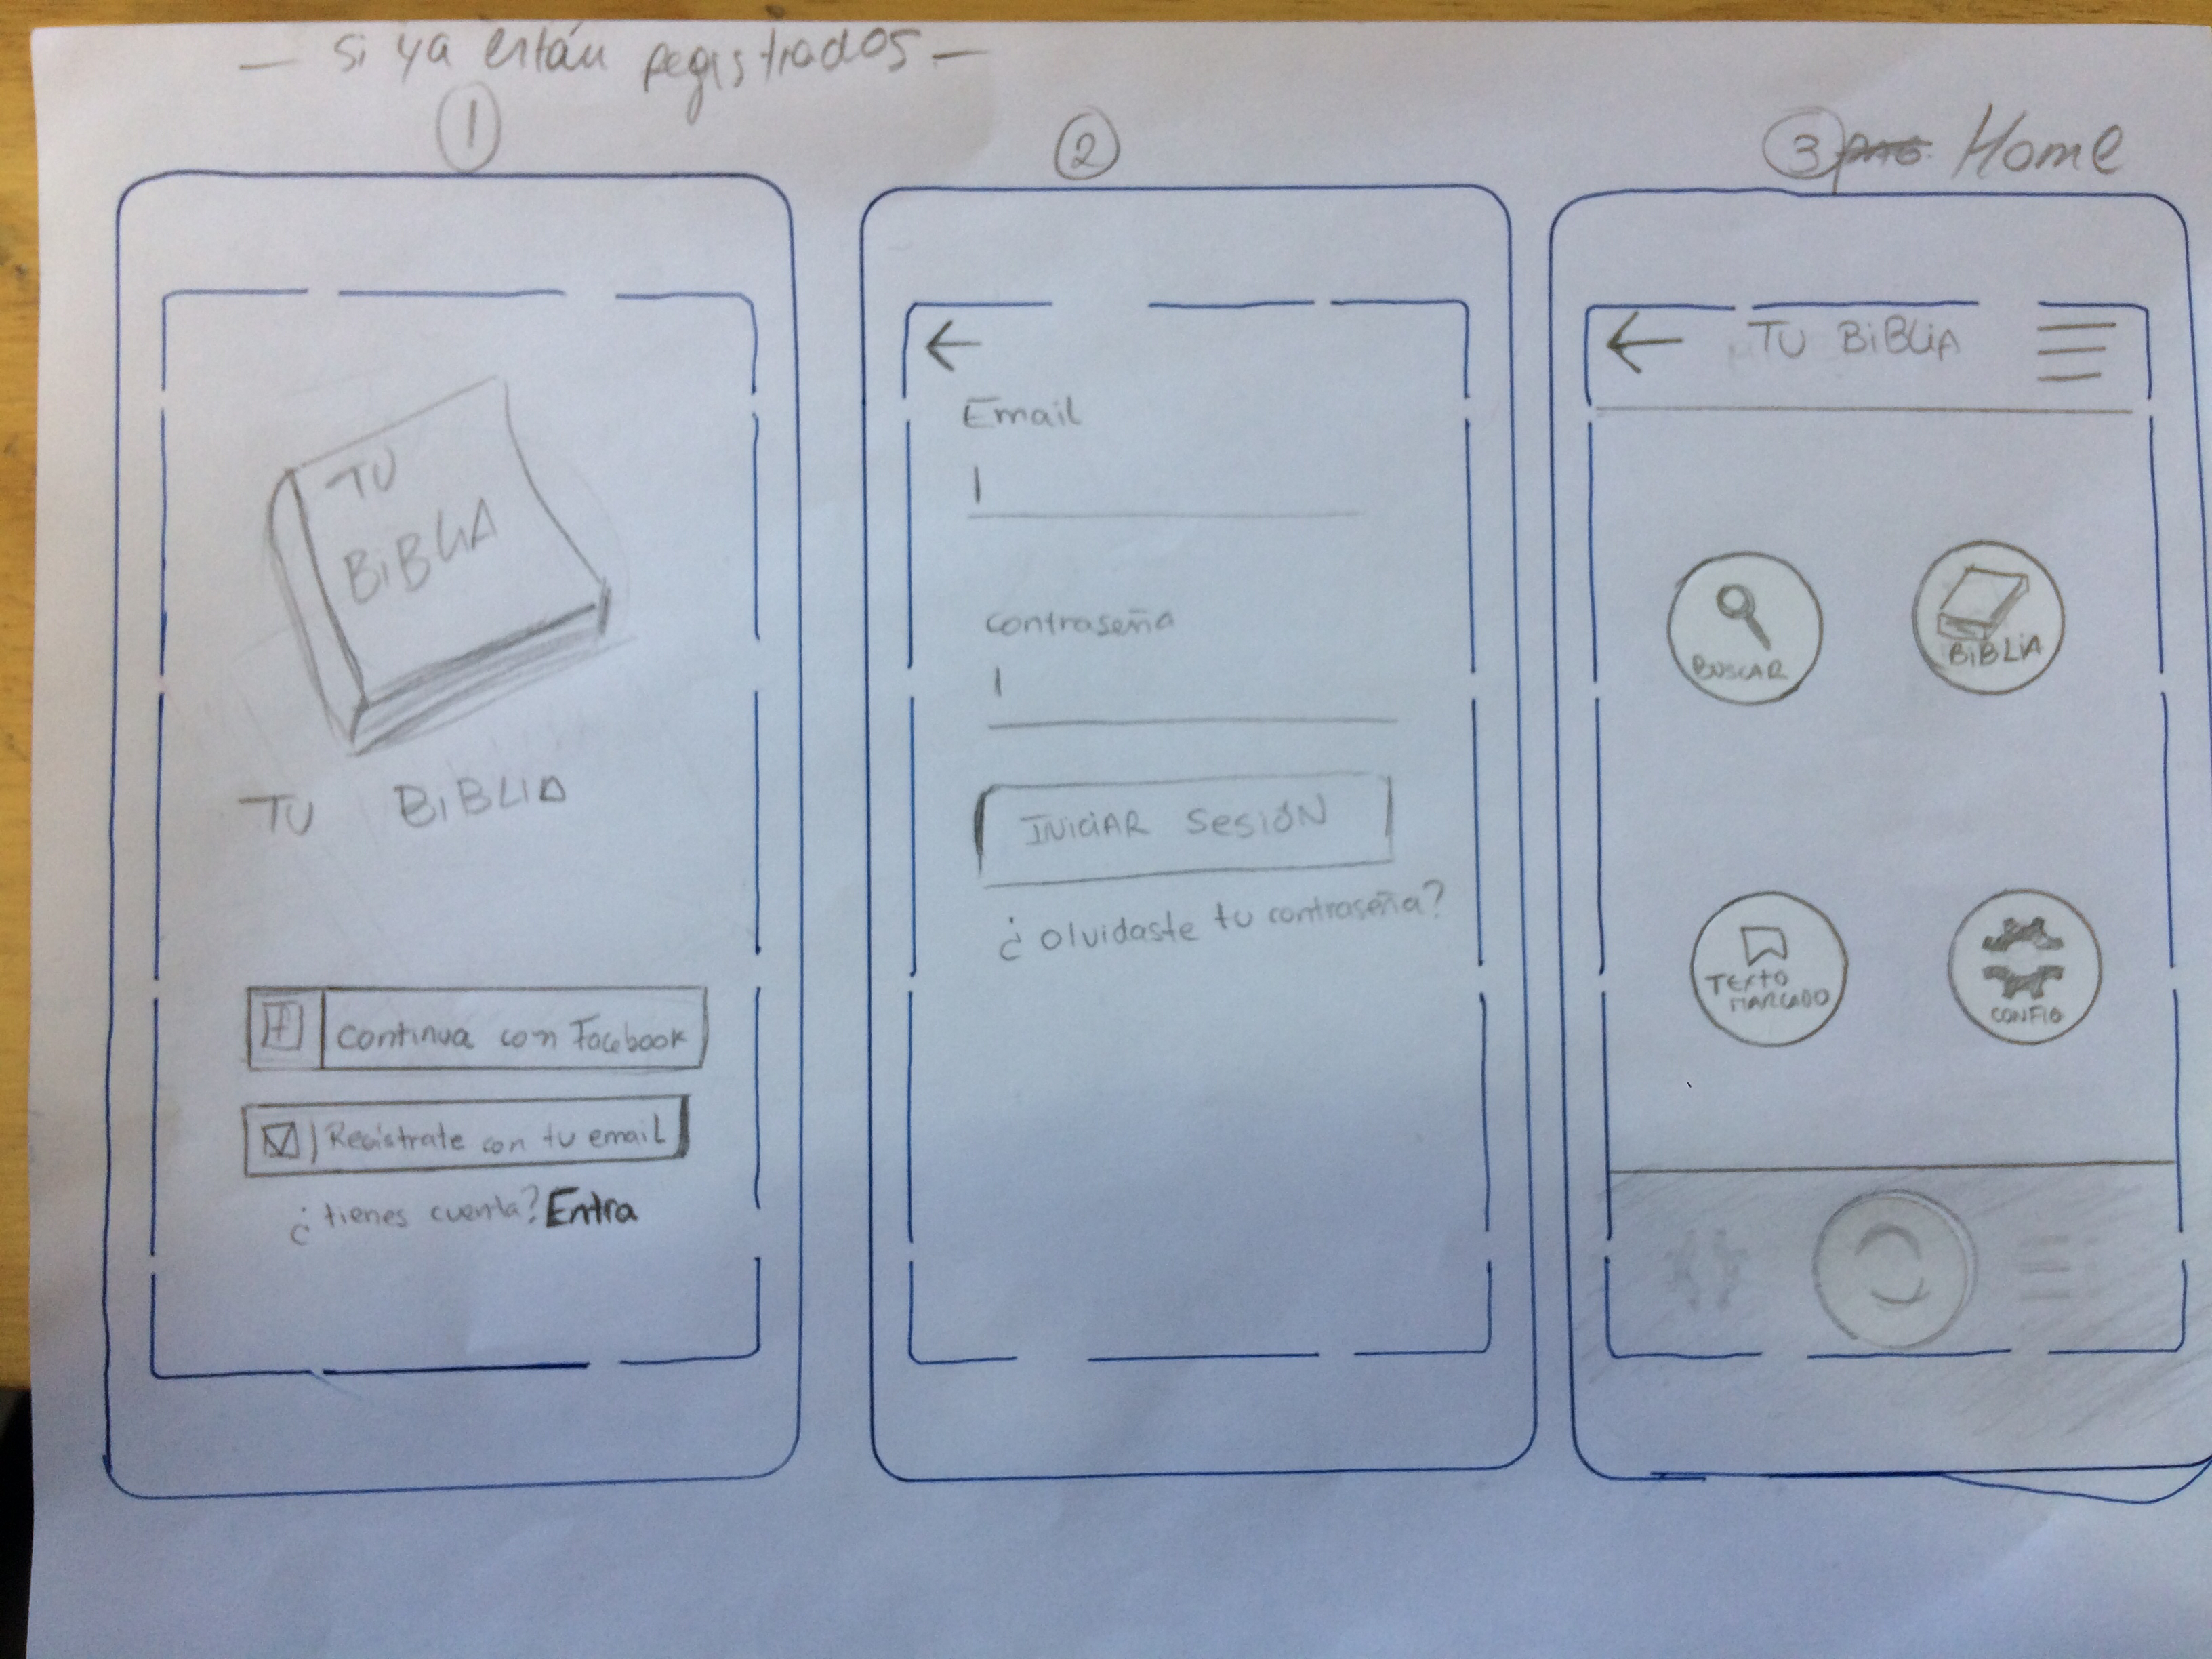 — si ya están registrados —
1
TU
BiBLIA
TU BiBLIA
f
continua con Facebook
Registrate con tu email
¿tienes cuenta? Entra
2
Email
contraseña
INICIAR SESIÓN
¿olvidaste tu contraseña?
3 Home
TU BiBLiA
BUSCAR
BiBLiA
TEXTO
MARCADO
CONFIG